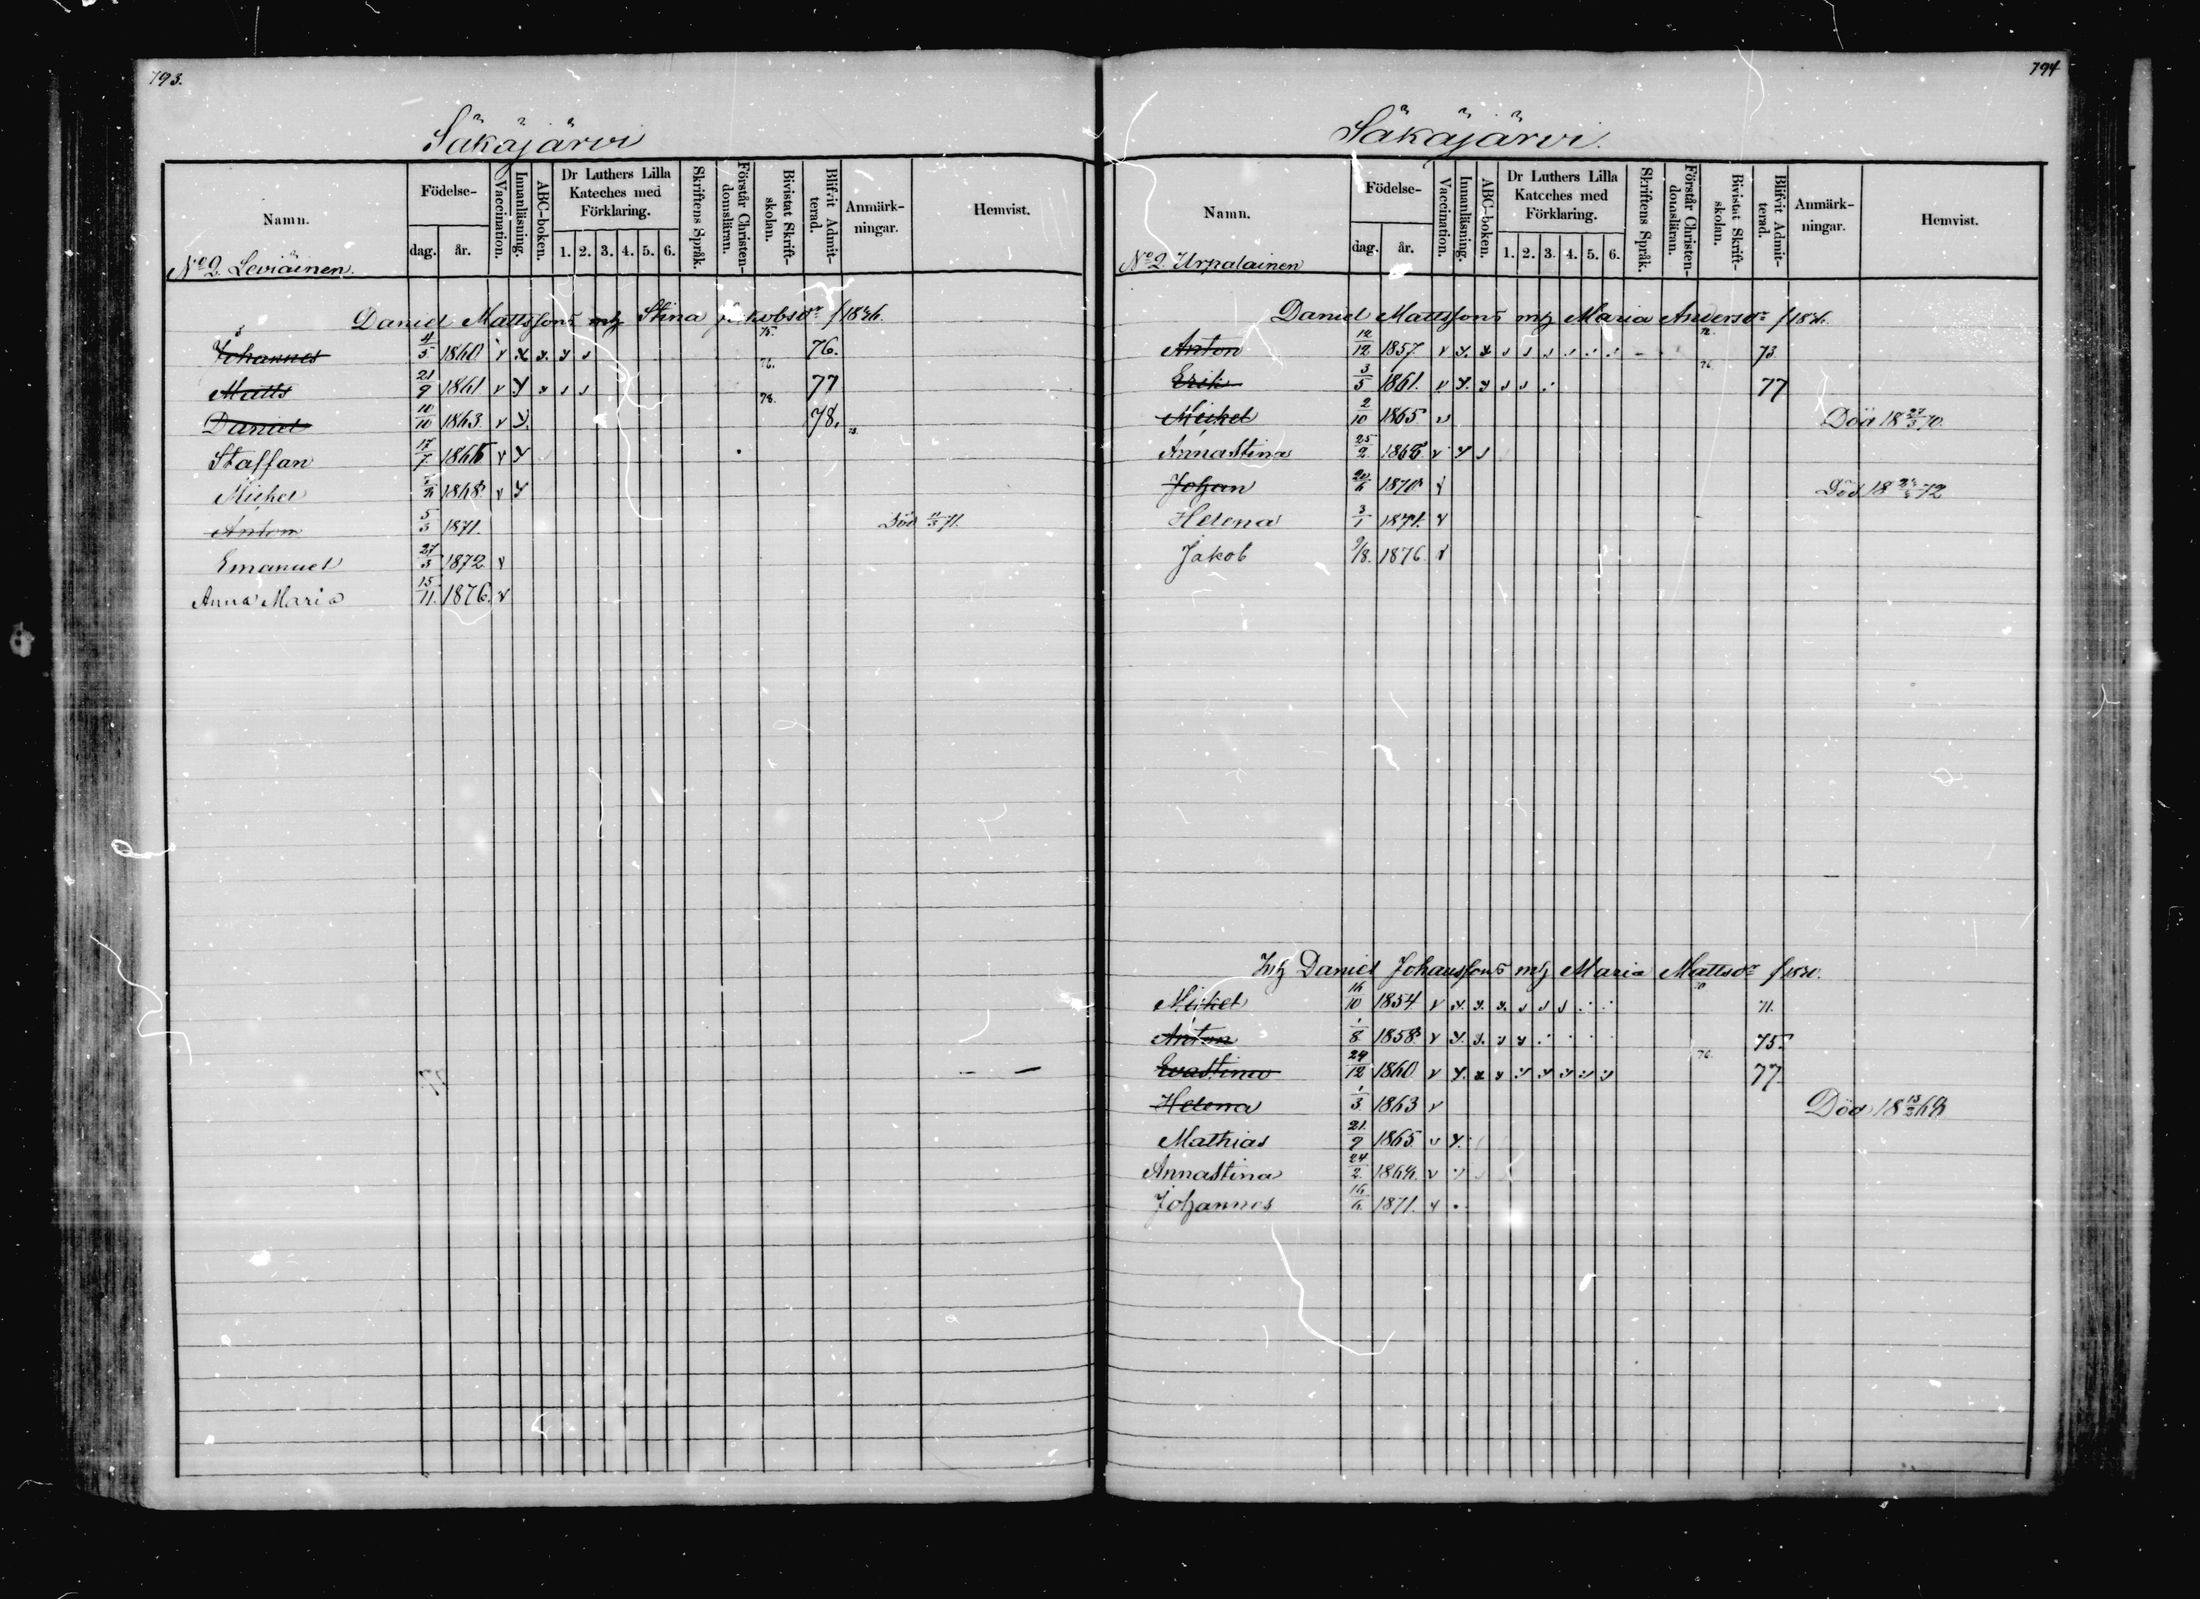 793.
Säkäjärvi
Namn.
Födelse-
dag.
år.
Vaccination.
Innanläsning.
ABC-boken.
Dr Luthers Lilla
Kateches med
Förklaring.
1. 2. 3. 4. 5. 6.
Skriftens Språk.
Förstår Christen-
domsläran.
Bivistat Skrift-
skolan.
Blifvit Admit-
terad.
Anmärk-
ningar.
Hemvist.
No 2 Leviäinen.
Daniel Mattssons Stina Jakobsdr f 1836.
Johannes 4/5 1860 75. 76.
Matts 21/9 1861 76. 77
Daniel 10/10 1863 78. 78.
Staffan 17/7 1866
Michel 1868
Anton 5/3 1871. Död 11/3 71.
Emanuel 27/3 1872
Anna Maria 15/11. 1876.
794
Säkäjärvi.
Namn.
Födelse-
dag.
år.
Vaccination.
Innanläsning.
ABC-boken.
Dr Luthers Lilla
Kateches med
Förklaring.
1. 2. 3. 4. 5. 6.
Skriftens Språk.
Förstår Christen-
domsläran.
Bivistat Skrift-
skolan.
Blifvit Admit-
terad.
Anmärk-
ningar.
Hemvist.
No 2 Urpalainen
Daniel Mattssons m/ Maria Andersdr
Anton 12/12 1857. 72. 73
Erik 3/5 1861. 76. 77
Michel 2/10 1865 Död 18 27/3 70.
Annastina 25/2 1868
Johan 20/6 1870 Död 18 72
Helena 3/1 1874.
Jakob 9/8. 1876
Daniel Johanssons m/ Maria Mattsdr f 1830.
Michel 16/10 1854 70 71.
Anton 1/8 1858 75.
Evastina 24/12 1860 76. 77
Helena 1/3 1863 Död 18 13/2 68
Mathias 21/9 1865
Annastina 24/2 1868.
Johannes 16/6 1871.